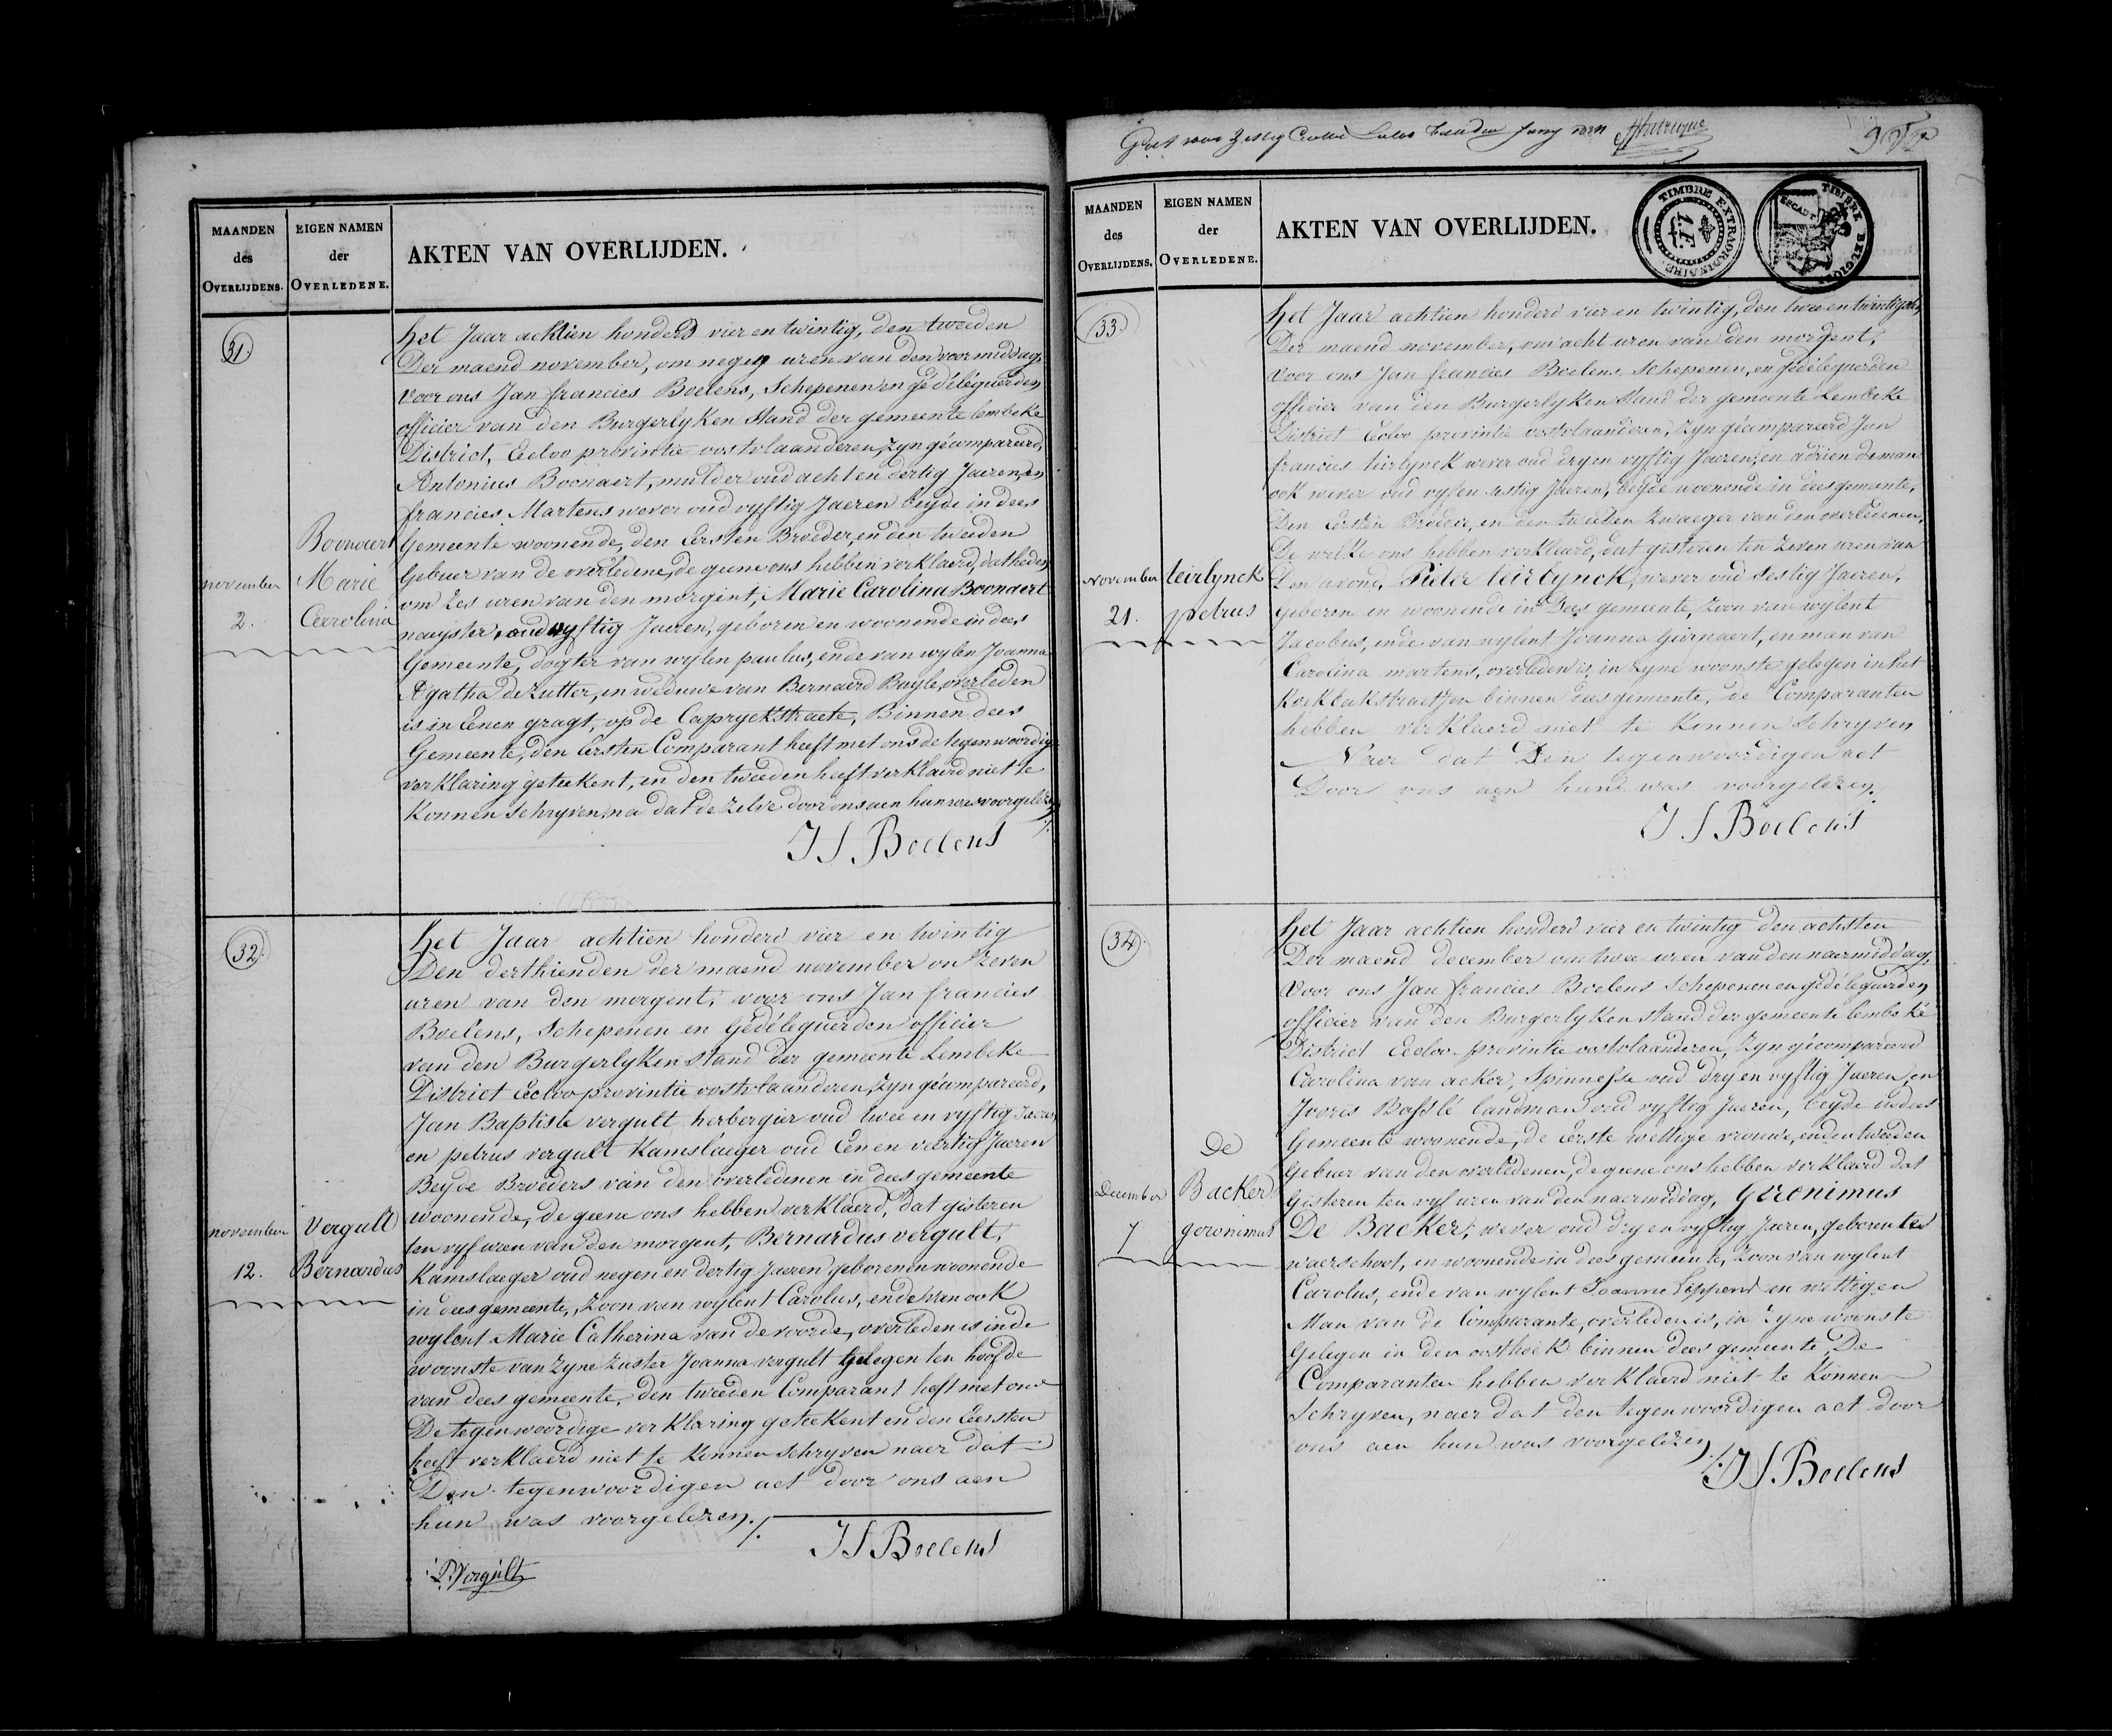 MAANDEN
des
OVERLIJDENS.
EIGEN NAMEN
der
OVERLEDENE.
AKTEN VAN OVERLIJDEN.
31.
november
2.
Boonaert
Marie
Carolina
het Jaar achtien honderd vier en twintig, den tweeden
Der maend november, om negen uren van den voormiddag,
voor ons Jan francies Boelens, Schepenen en gédéléguerden
officier van den Burgerlyken Stand der gemeente lembeke
District, Eecloo provintie oostvlaanderen, zyn gécompareerd,
Antonius Boonaert, mulder oud acht en dertig Jaeren, en
francies Martens wever oud vyftig Jaeren beyde in dees
Gemeente woonende, den Eersten Broeder, en den tweeden
Gebuer van de overledene, de geene ons hebben verklaerd, dat heden
om zes uren van den morgent, Marie Carolina Boonaert
nayster, oud vyftig Jaeren, géboren en woonende in dees
Gemeente, dogter van wylen paulus, ende van wylen Joanna
Agatha de Zutter, en weduwe van Bernaerd Buyle, overleden
is in Eenen gragt, op de Caprycktraete, Binnen dees
Gemeente, den Eersten Comparant heeft met ons de tegenwoordige
verklaring geteekent, en den tweeden heeft verklaerd niet te
Konnen Schryven, na dat de zelve door ons aen hun was voorgelezen
J S. Boelens
32.
november
12.
Vergult
Bernardus
het Jaar achtien honderd vier en twintig
Den derthienden der maend november om zeven
uren van den morgent, voor ons Jan francies
Boelens, Schepenen en Gédéleguerden officier
van den Burgerlyken Stand der gemeente Lembeke
District Eecloo provintie oostvlaanderen, zyn gécompareerd,
Jan Baptiste vergult herbergier oud twee en vyftig Jaeren,
en petrus vergult Kamslaeger oud Een en veertig Jaeren
Beyde Broeders van den overledenen in dees gemeente
woonende, de geene ons hebben verklaerd, dat gisteren
ten vyf uren van den morgent, Bernardus vergult,
Kamslaeger oud negen en dertig Jaeren geboren en woonende
in dees gemeente, Zoon van wylent Carolus, ende van ook
wylent Marie Catherina van de voorde, overleden is in de
woonste van zyne Zuster Joanna vergult gelegen ten hoofde
van dees gemeente, den tweeden Comparant heeft met ons
De tegenwoordige verklaring geteekent en den Eersten
heeft verklaerd niet te Konnen Schryven naer dat
Den tegenwoordigen act door ons aen
hun was voorgelezen ./.
J S Boelens
P. Vergult
MAANDEN
des
OVERLIJDENS.
EIGEN NAMEN
der
OVERLEDENE.
AKTEN VAN OVERLIJDEN.
TIMBRE EXTRAORDINAIRE
TIMBRE BELGIQUE
ESCAUT
33.
november
21.
teirlynck
petrus
het Jaar achtien honderd vier en twintig, den twee en twintigsten
Der maend november, om acht uren van den morgent,
Voor ons Jan francies Boelens, Schepenen, en gédéleguerden
officier van den Burgerlyken Stand der gemeente Lembeke
District Eecloo provintie oostvlaanderen, zyn gécompareerd Jan
francies teirlynck wever oud dry en vyftig Jaeren, en adrien deman
ook wever oud vyf en sestig Jaeren, beyde woonende in dees gemeente,
Den Eersten Broeder, en den tweeden Zwaeger van den overledenen,
De welke ons hebben verklaerd, dat gisteren ten zeven uren van
Den avond, Pieter teirlynck, wever oud sestig Jaeren,
geboren en woonende in Dees gemeente, Zoon van wylent
Jacobus, ende van wylent Joanna Geirnaert, en man van
Carolina martens, overleden is, in zyne woonste gelegen in het
Kerkbukstraetjen binnen dees gemeente, de Comparanten
hebben verklaerd niet te Konnen Schryven
Naer dat Den tegenwoordigen act
Door ons aen hun was voorgelezen.
J S Boelens
34.
December
7
De
Backer
geronimus
het Jaar achtien honderd vier en twintig den achsten
Der maend december om twee uren van den naermiddag,
Voor ons Jan francies Boelens Schepenen en gédéleguerden
officier van den Burgerlyken stand der gemeente lembeke
District Eecloo provintie oostvlaanderen, zyn gécompareerd
Carolina van acker, Spinnesse oud dry en vyftig Jaeren, en
Jooris Basslé landman oud vyftig Jaeren, beyde in dees
Gemeente woonende, de Eerste wettige vrouwe, en den tweeden
Gebuer van den overledenen, de geene ons hebben verklaerd dat
Gisteren ten vyf uren van den naermiddag, Geronimus
De Backer, wever oud dry en vyftig Jaeren, geboren tot
waerschoot, en woonende in dees gemeente, Zoon van wylent
Carolus, ende van wylent Joanne Lippens en wettigen
Man van de Comparante, overleden is, in zyne woonste
Gelegen in den oosthoek binnen dees gemeente, De
Comparanten hebben verklaerd niet te Konnen
Schryven, naer dat den tegenwoordigen act door
ons aen hun was voorgelezen ./.
J S. Boelens